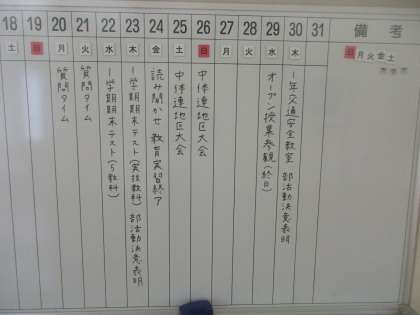 18 19 20 21 22 23 24 25 26 27 28 29 30 31 備考
土 日 月 火 水 木 金 土 日 月 火 水 木
日 月 火 金 土
質問タイム
質問タイム
1学期期末テスト(5教科)
1学期期末テスト(実技教科) 部活動決意表明
読み聞かせ 教育実習終了
中体連地区大会
中体連地区大会
オープン授業参観(終日)
1年交通安全教室 部活動決意表明